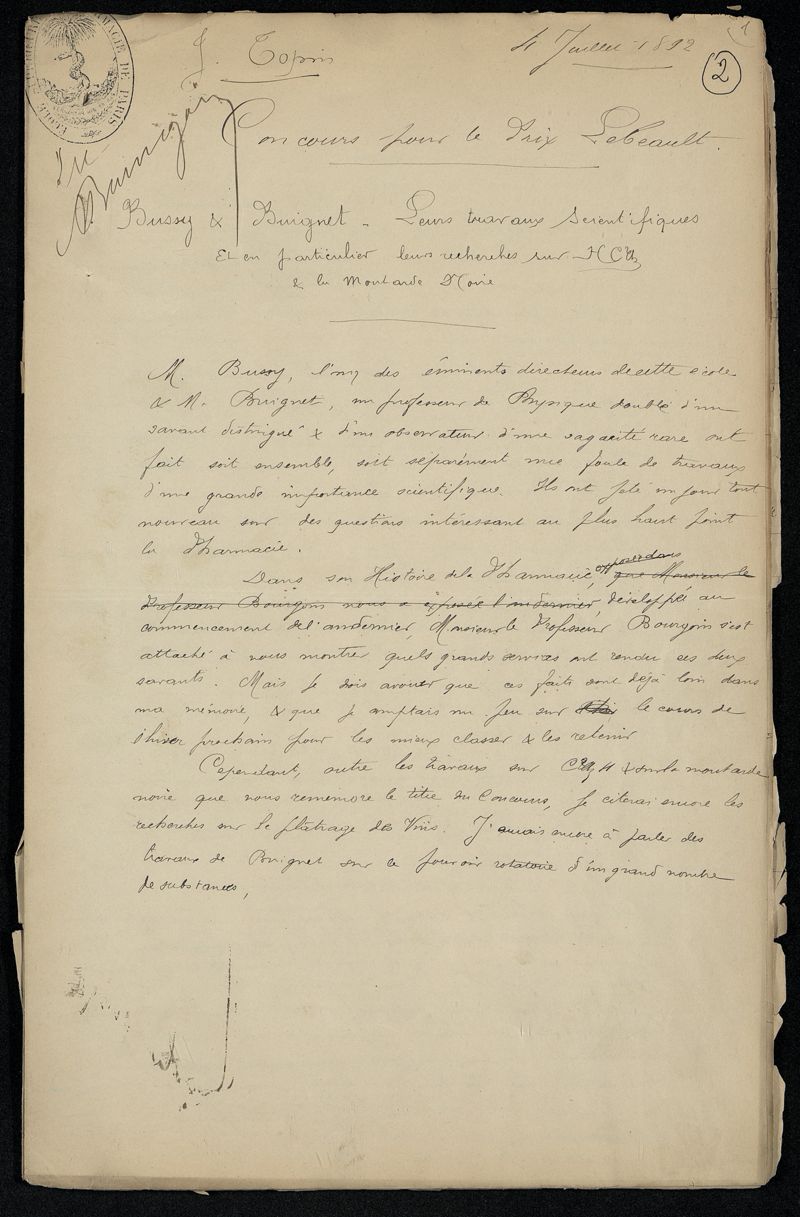 1
J. Topin
4 Juillet 1892
2
ÉCOLE SUPÉRIEURE DE PHARMACIE DE PARIS
Vu
Bourgoin
Concours pour le Prix Lebeault.
Bussy & Buignet - Leurs travaux scientifiques
Et en particulier leurs recherches sur HCAz
& la Moutarde Noire
M. Bussy, l'un des éminents directeurs de cette école
& M. Buignet, un professeur de Physique doublé d'un
savant distingué & d'un observateur d'une sagacité rare ont
fait soit ensemble, soit séparément une foule de travaux
d'une grande importance scientifique. Ils ont jeté un jour tout
nouveau sur des questions intéressant au plus haut point
la Pharmacie.
Dans son Histoire de la Pharmacie, que Monsieur le
Professeur Bourgoin nous a exposée l'an dernier, développée au
commencement de l'an dernier, Monsieur le Professeur Bourgoin s'est
attaché à nous montrer quels grands services ont rendu ces deux
savants. Mais je dois avouer que ces faits sont déjà loin dans
ma mémoire, & que je comptais un peu sur le cours de
l'hiver prochain pour les mieux classer & les retenir
Cependant, outre les travaux sur CAzH & sur la moutarde
noire que nous rememore le titre du Concours, je citerai encore les
recherches sur le plâtrage des Vins. J'aurais encore à parler des
travaux de Buignet sur le pouvoir rotatoire d'un grand nombre
de substances,